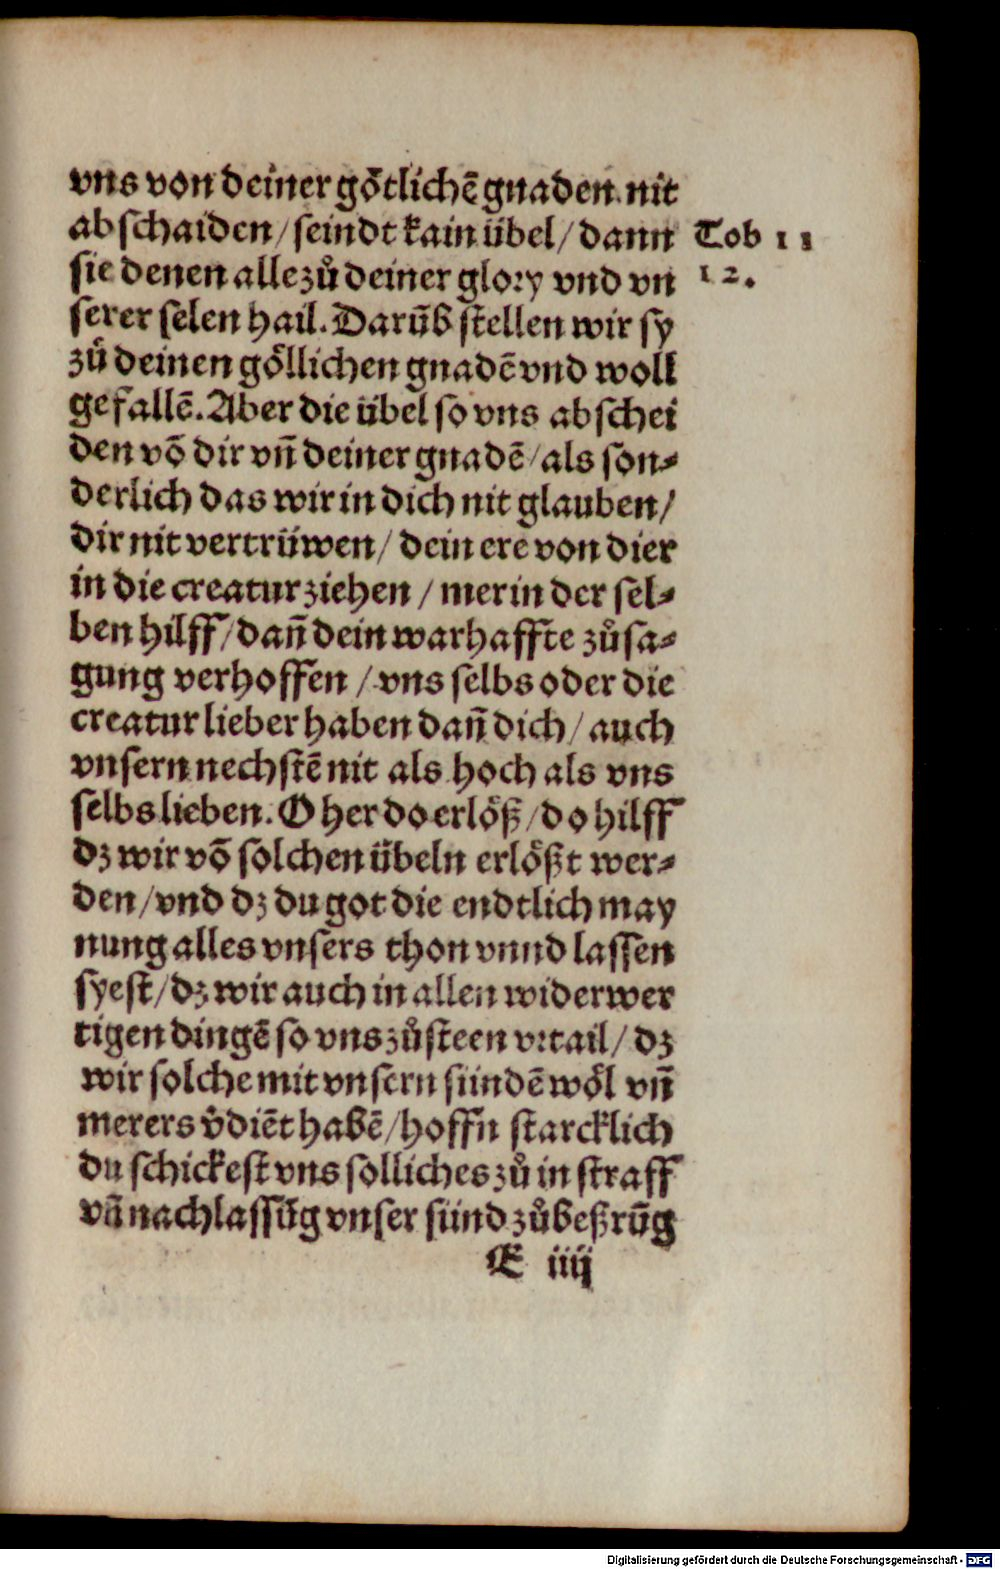 vns von deiner götlichē gnaden nit
abschaiden/ seindt kain übel/ dann
Tob 11
12.
sie denen alle zů deiner glory vnd vn
serer selen hail. Darūb stellen wir sy
zů deinen göllichen gnadē vnd woll
gefallē. Aber die übel so vns abschei
den vō dir vn̄ deiner gnadē/ als son⸗
derlich das wir in dich nit glauben/
dir nit vertrüwen/ dein ere von dier
in die creatur ziehen / mer in der sel⸗
ben hilff/ dan̄ dein warhaffte zůsa⸗
gung verhoffen / vns selbs oder die
creatur lieber haben dan̄ dich/ auch
vnsern nechstē nit als hoch als vns
selbs lieben. O her do erlöß/ do hilff
dz wir vō solchen übeln erlößt wer⸗
den/ vnd dz du got die endtlich may
nung alles vnsers thon vnnd lassen
syest/ dz wir auch in allen widerwer
tigen dingē so vns zůsteen vrtail/ dz
wir solche mit vnsern sündē wöl vn̄
merers v̄diēt habē/ hoffn starcklich
du schickest vns solliches zů in straff
vn̄ nachlassūg vnser sünd zůbeßrūg
E iiij
Digitalisierung gefördert durch die Deutsche Forschungsgemeinschaft - DFG